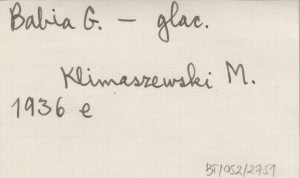 Babia G. – glac.
Klimaszewski M.
1936 e
BT/052/2751